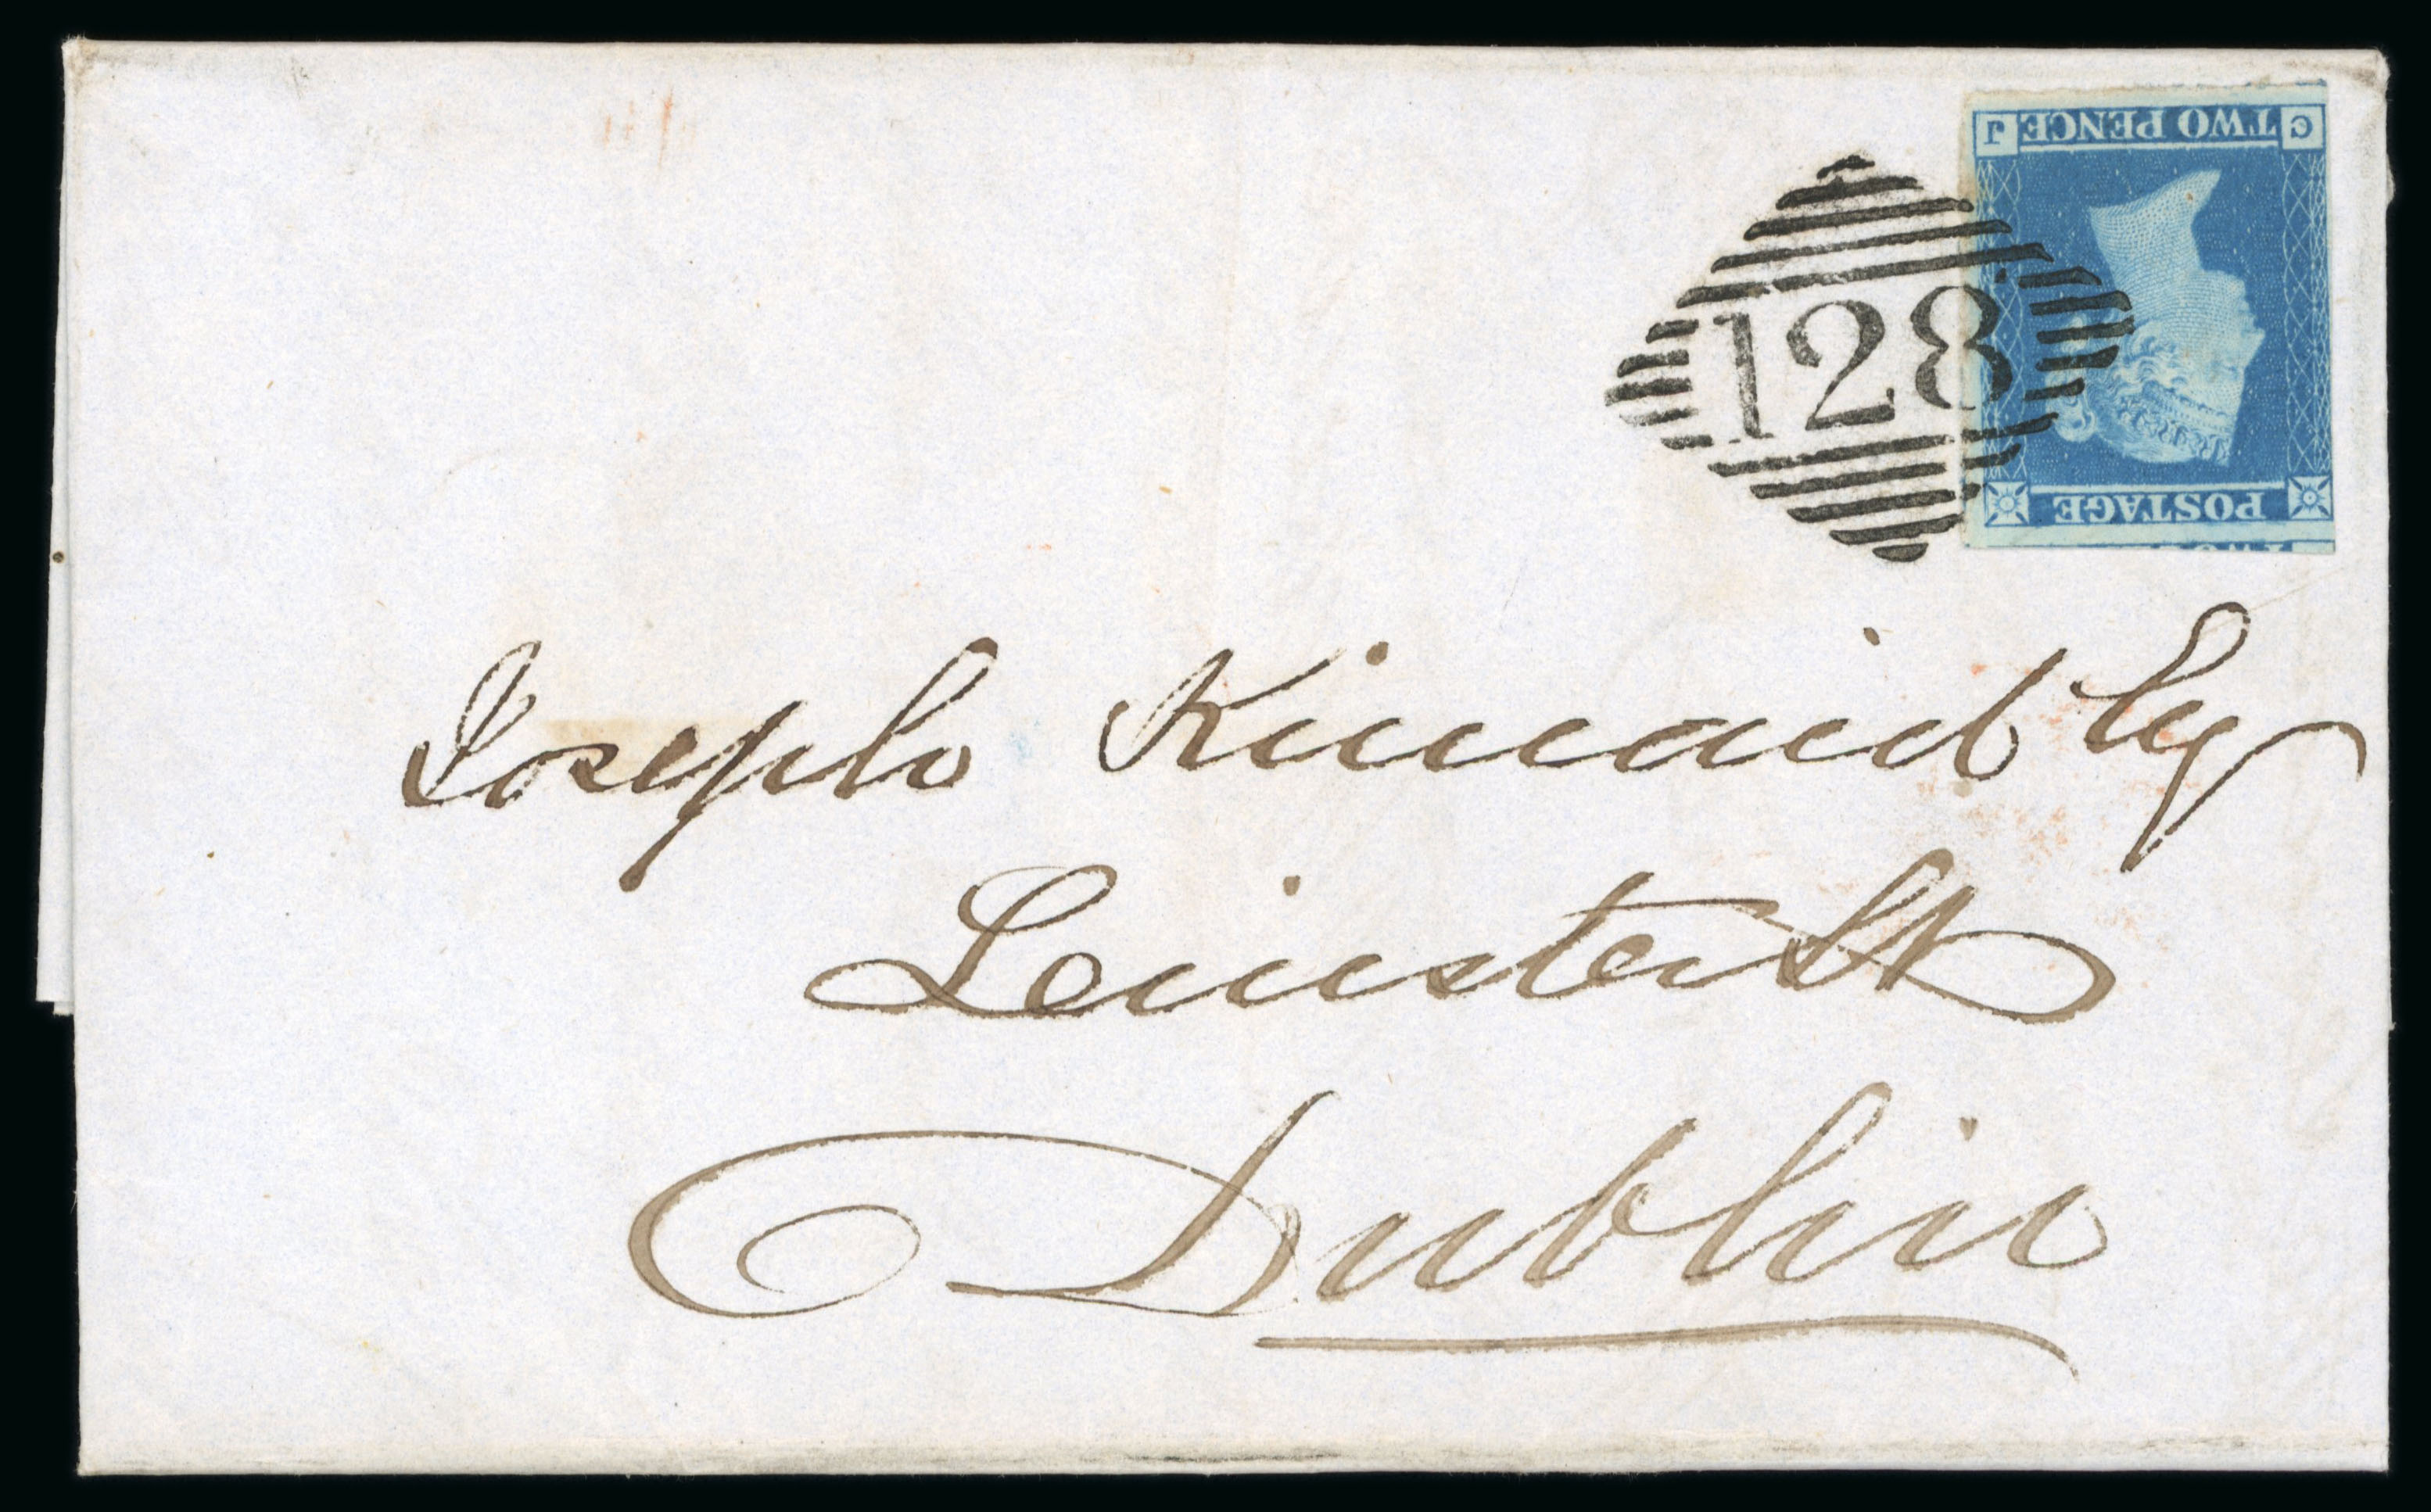 C TWO PENCE J
POSTAGE
128
Joseph Kincaid Esq
Leinster St
Dublin